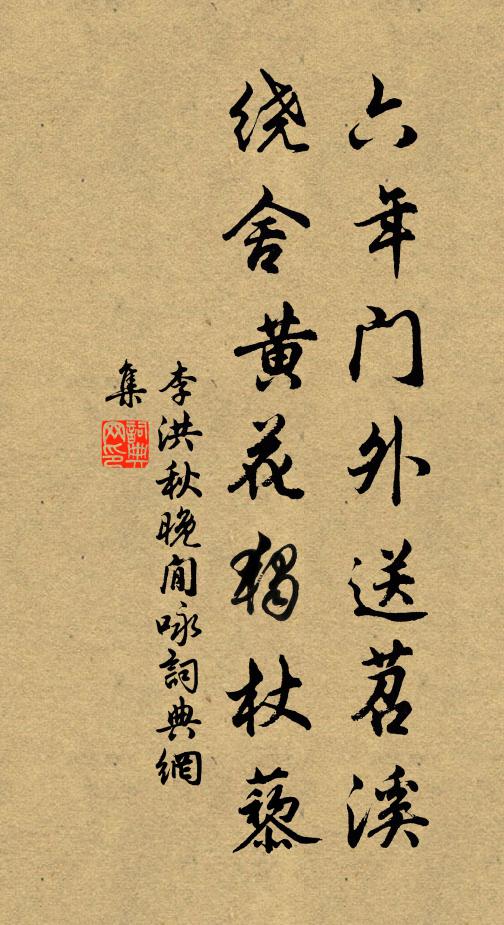 六年门外送苕溪
绕舍黄花独杖藜
李洪秋晚闲咏詞典網
集
詞典
网印